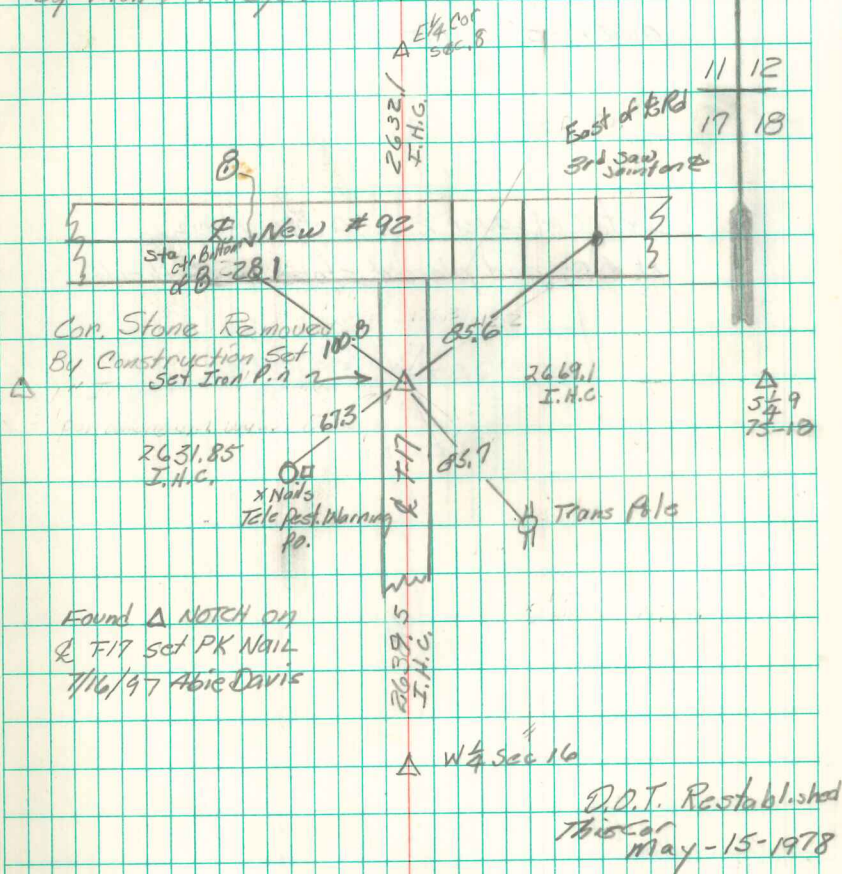 E 1/4 Cor
Sec. 8
2632.1
I.H.C.
11 12
17 18
East of ℄ Rd
3rd Saw
Joint on ℄
8
℄ New # 92
Sta
ctr Button
of 8 - 281
Cor. Stone Removed
By Construction Set
Set Iron Pin
100.8
85.6
2669.1
I.H.C
S 1/4 9
75-18
67.3
2631.85
I.H.C.
℄ T-17
85.7
x Nails
Tele Pest. Warning
Po.
Trans Pole
Found △ NOTCH on
℄ T17 Set PK NAIL
7/16/97 Abie Davis
2639.5
I.H.C.
W 1/4 Sec 16
D.O.T. Restablished
This Cor
May-15-1978